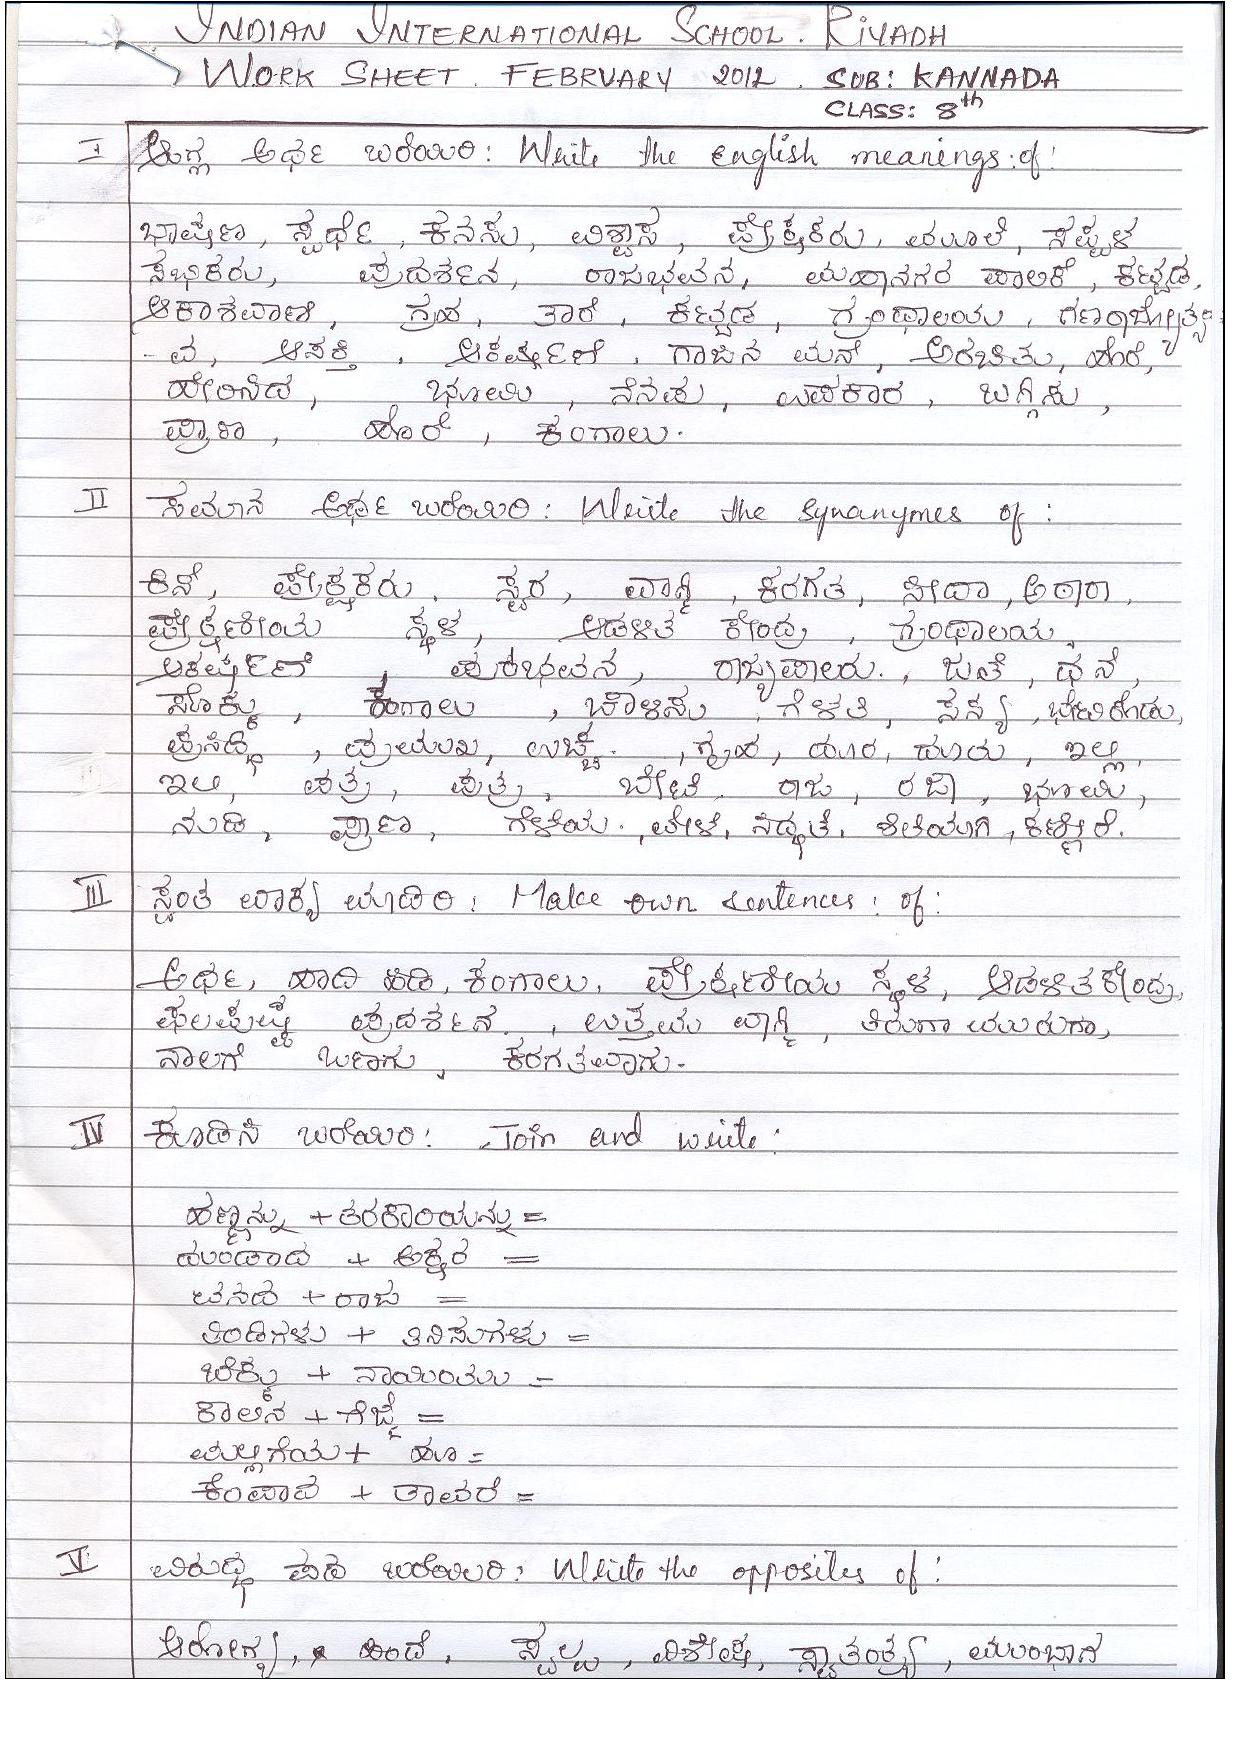 INDIAN INTERNATIONAL SCHOOL. RIYADH
WORK SHEET. FEBRUARY 2012. SUB: KANNADA
CLASS: 8th
I ಆಂಗ್ಲ ಅರ್ಥ ಬರೆಯಿರಿ: Write the english meanings: of:
ಭಾಷಣ, ಸ್ಪರ್ಧೆ, ಕನಸು, ವಿಶ್ವಾಸ, ಪ್ರೇಕ್ಷಕರು, ಮೂಲೆ, ಸಪ್ಪಳ
ಸಭಿಕರು, ಪ್ರದರ್ಶನ, ರಾಜಭವನ, ಮಹಾನಗರ ಪಾಲಿಕೆ, ಕಟ್ಟಡ,
ಆಕಾಶವಾಣಿ, ಗ್ರಹ, ತಾರೆ, ಕಟ್ಟಡ, ಗ್ರಂಥಾಲಯ, ಗಣರಾಜ್ಯೋತ್ಸ-
-ವ, ಆಸಕ್ತಿ, ಆಕರ್ಷಣೆ, ಗಾಜಿನ ಮನೆ, ಅರಚಿತು, ಹೊರೆ,
ಭೂಮಿ, ನೆನಪು, ಉಪಕಾರ, ಬಗ್ಗಿಸು,
ಪ್ರಾಣಿ, ಹೊರೆ, ಕಂಗಾಲು.
II ಸಮಾನ ಅರ್ಥ ಬರೆಯಿರಿ: Write the synanymes of:
ಕಿನ್, ಪ್ರೇಕ್ಷಕರು, ಸ್ವರ, ವಾಗ್ಮಿ, ಕರಗತ, ಸೀದಾ,
ಪ್ರೇಕ್ಷಣೀಯ ಸ್ಥಳ, ಆಡಳಿತ ಕೇಂದ್ರ, ಗ್ರಂಥಾಲಯ,
ಆಕರ್ಷಣೆ, ಪುರಭವನ, ರಾಜ್ಯಪಾಲರು, ಜತೆ,
ಸೊಕ್ಕು, ಕಂಗಾಲು, ಗೆಳತಿ, ಸಸ್ಯ, ಭೇಟಿಕೊಡು,
ಪ್ರಸಿದ್ಧಿ, ಪ್ರಮುಖ, ಉಚ್ಚ, ಗೃಹ, ದೂರ, ದೂರು, ಇಲ್ಲಿ,
ಇಲಿ, ಪತ್ರ, ಪುತ್ರ, ಬೇಟೆ, ರಾಜ, ರಜಾ, ಭೂಮಿ,
ನುಡಿ, ಪ್ರಾಣ, ಗೆಳೆಯ, ವೇಳೆ, ಸಿದ್ಧತೆ, ಕಣ್ಣೀರು.
III ಸ್ವಂತ ವಾಕ್ಯ ಮಾಡಿರಿ: Make own sentences: of:
ಅರ್ಥ, ಹಾದಿ ಹಿಡಿ, ಕಂಗಾಲು, ಪ್ರೇಕ್ಷಣೀಯ ಸ್ಥಳ, ಆಡಳಿತ ಕೇಂದ್ರ,
ಫಲಪುಷ್ಪ ಪ್ರದರ್ಶನ, ಉತ್ತಮ ವಾಗ್ಮಿ, ತಿರುಗಾ ಮುರುಗಾ,
ನಾಲಗೆ ಒಣಗು, ಕರಗತವಾಗು.
IV ಕೂಡಿಸಿ ಬರೆಯಿರಿ: Join and write:
ಹಣ್ಣನ್ನು + ತರಕಾರಿಯನ್ನು =
ದುಂಡಾದ + ಅಕ್ಷರ =
ವನದ + ರಾಜ =
ತಿಂಡಿಗಳು + ತಿನಿಸುಗಳು =
ಬೆಕ್ಕು + ನಾಯಿಯೂ =
ಕಾಲಿನ + ಗೆಜ್ಜೆ =
ಮಲ್ಲಿಗೆಯ + ಹೂ =
ಕೆಂಪಾದ + ತಾವರೆ =
V ವಿರುದ್ಧ ಪದ ಬರೆಯಿರಿ: Write the opposites of:
ಆರೋಗ್ಯ, ಹಿಂದೆ, ಸ್ವಲ್ಪ, ವಿಶೇಷ, ಸ್ವಾತಂತ್ರ್ಯ, ಮುಂಭಾಗ